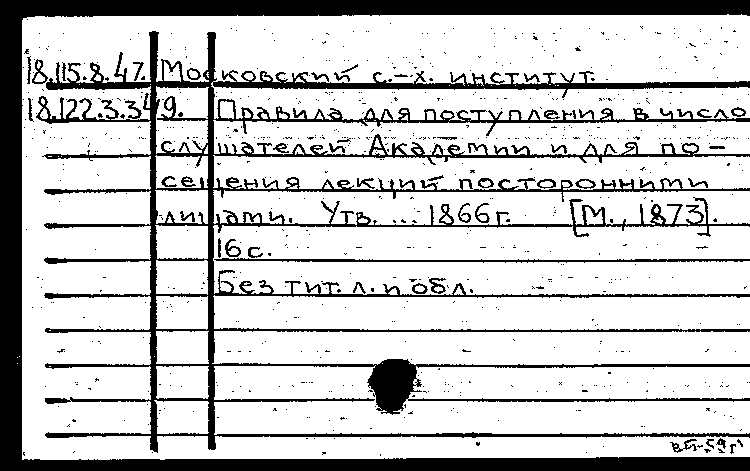 18.115.8.47. Московский с.-х. институт.
18.122.3.349. Правила для поступления в число
слушателей Академии и для по-
сещения лекций посторонними
лицами. Утв. ... 1866 г. [М., 1873].
16 с.
Без тит. л. и обл.